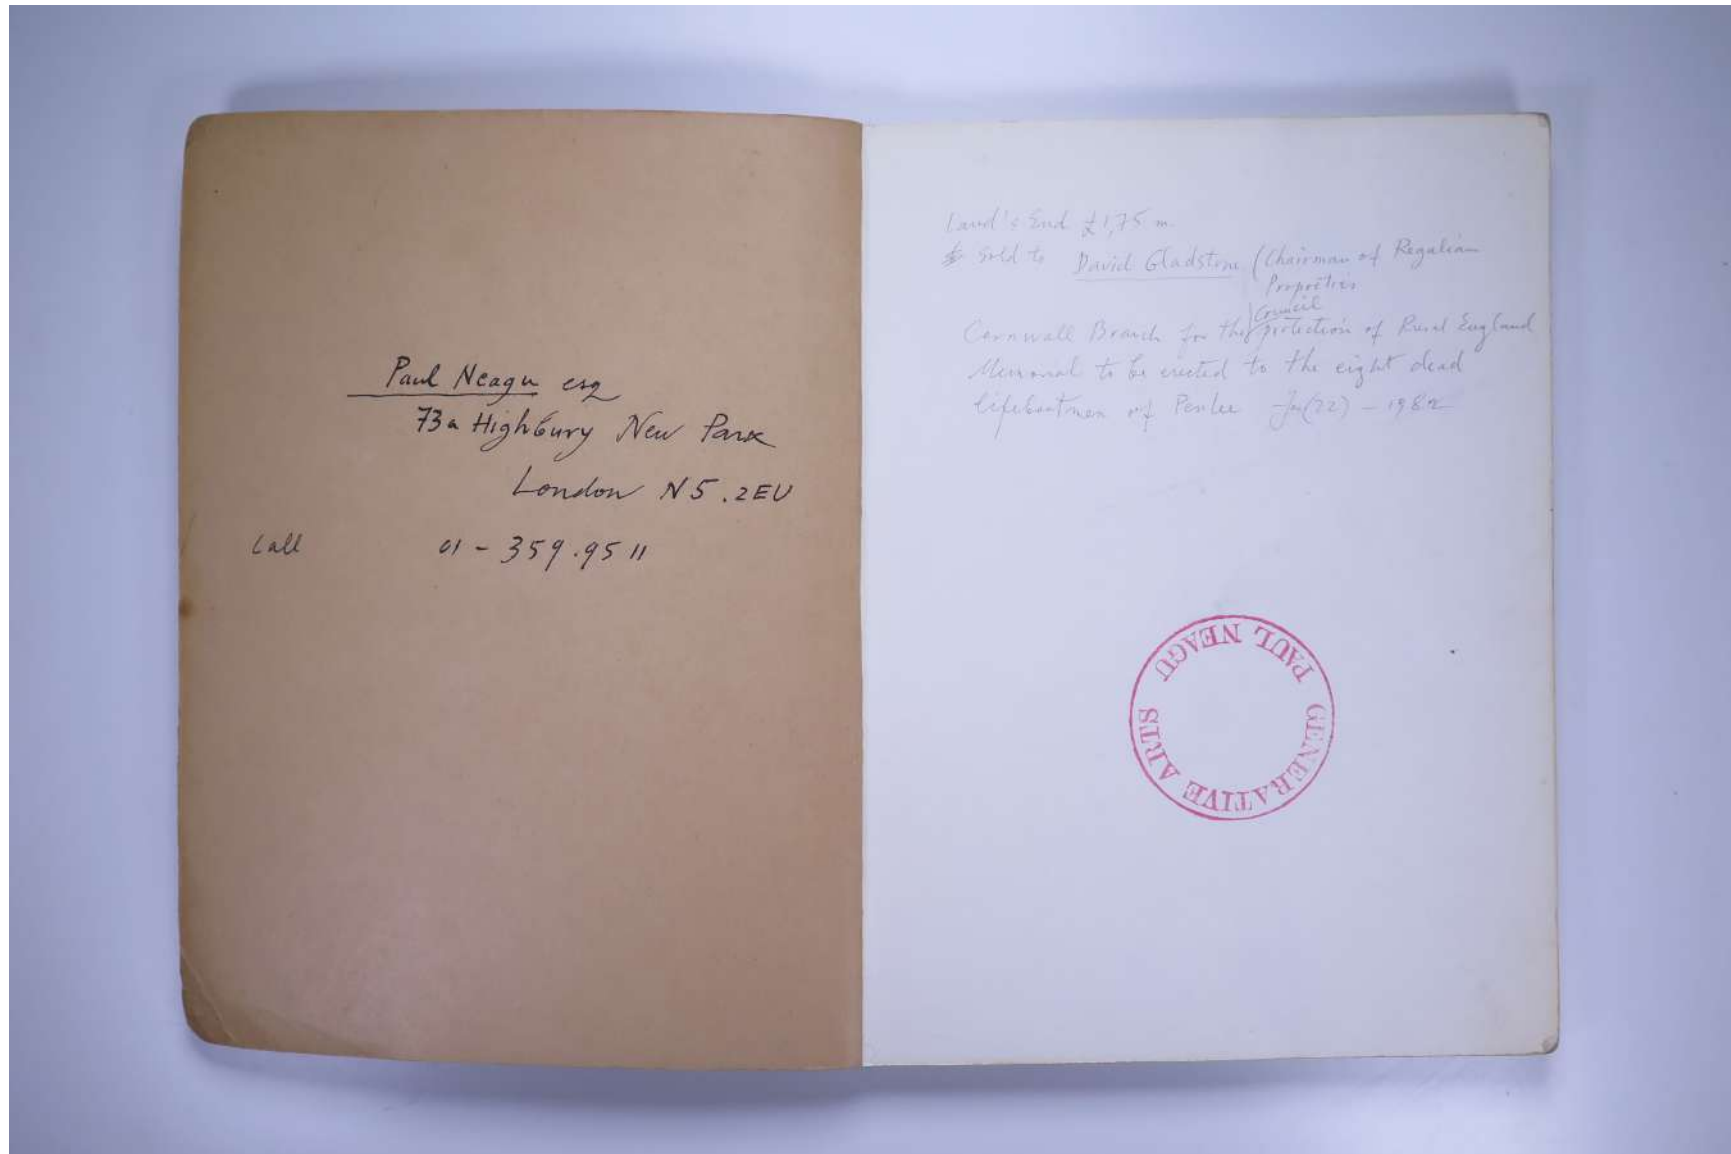 Paul Neagu esq
73a Highbury New Park
London N5.2EU
Call 01-359.9511
Land's End £1,75 m
Sold to David Gladstone (Chairman of Regalian
Propoëties
Council
Cornwall Branch for the protection of Rural England
Memorial to be erected to the eight dead
lifeboatmen of Penlee (22) - 1982
PAUL NEAGU
GENERATIVE ARTS